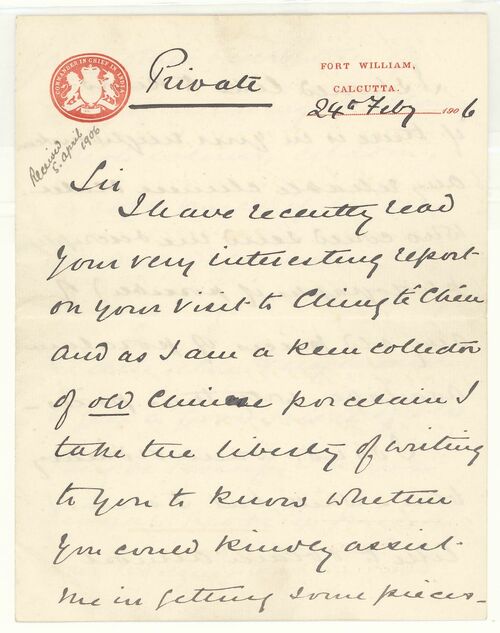 COMMANDER IN CHIEF IN INDIA
Private
FORT WILLIAM,
CALCUTTA.
24th Feby 1906
Received
5. april
1906
Sir
I have recently read
your very interesting report
on your visit to Ching tê Chên
and as I am a keen collector
of old Chinese porcelain I
take the liberty of writing
to you to know whether
you could kindly assist
me in getting some pieces -